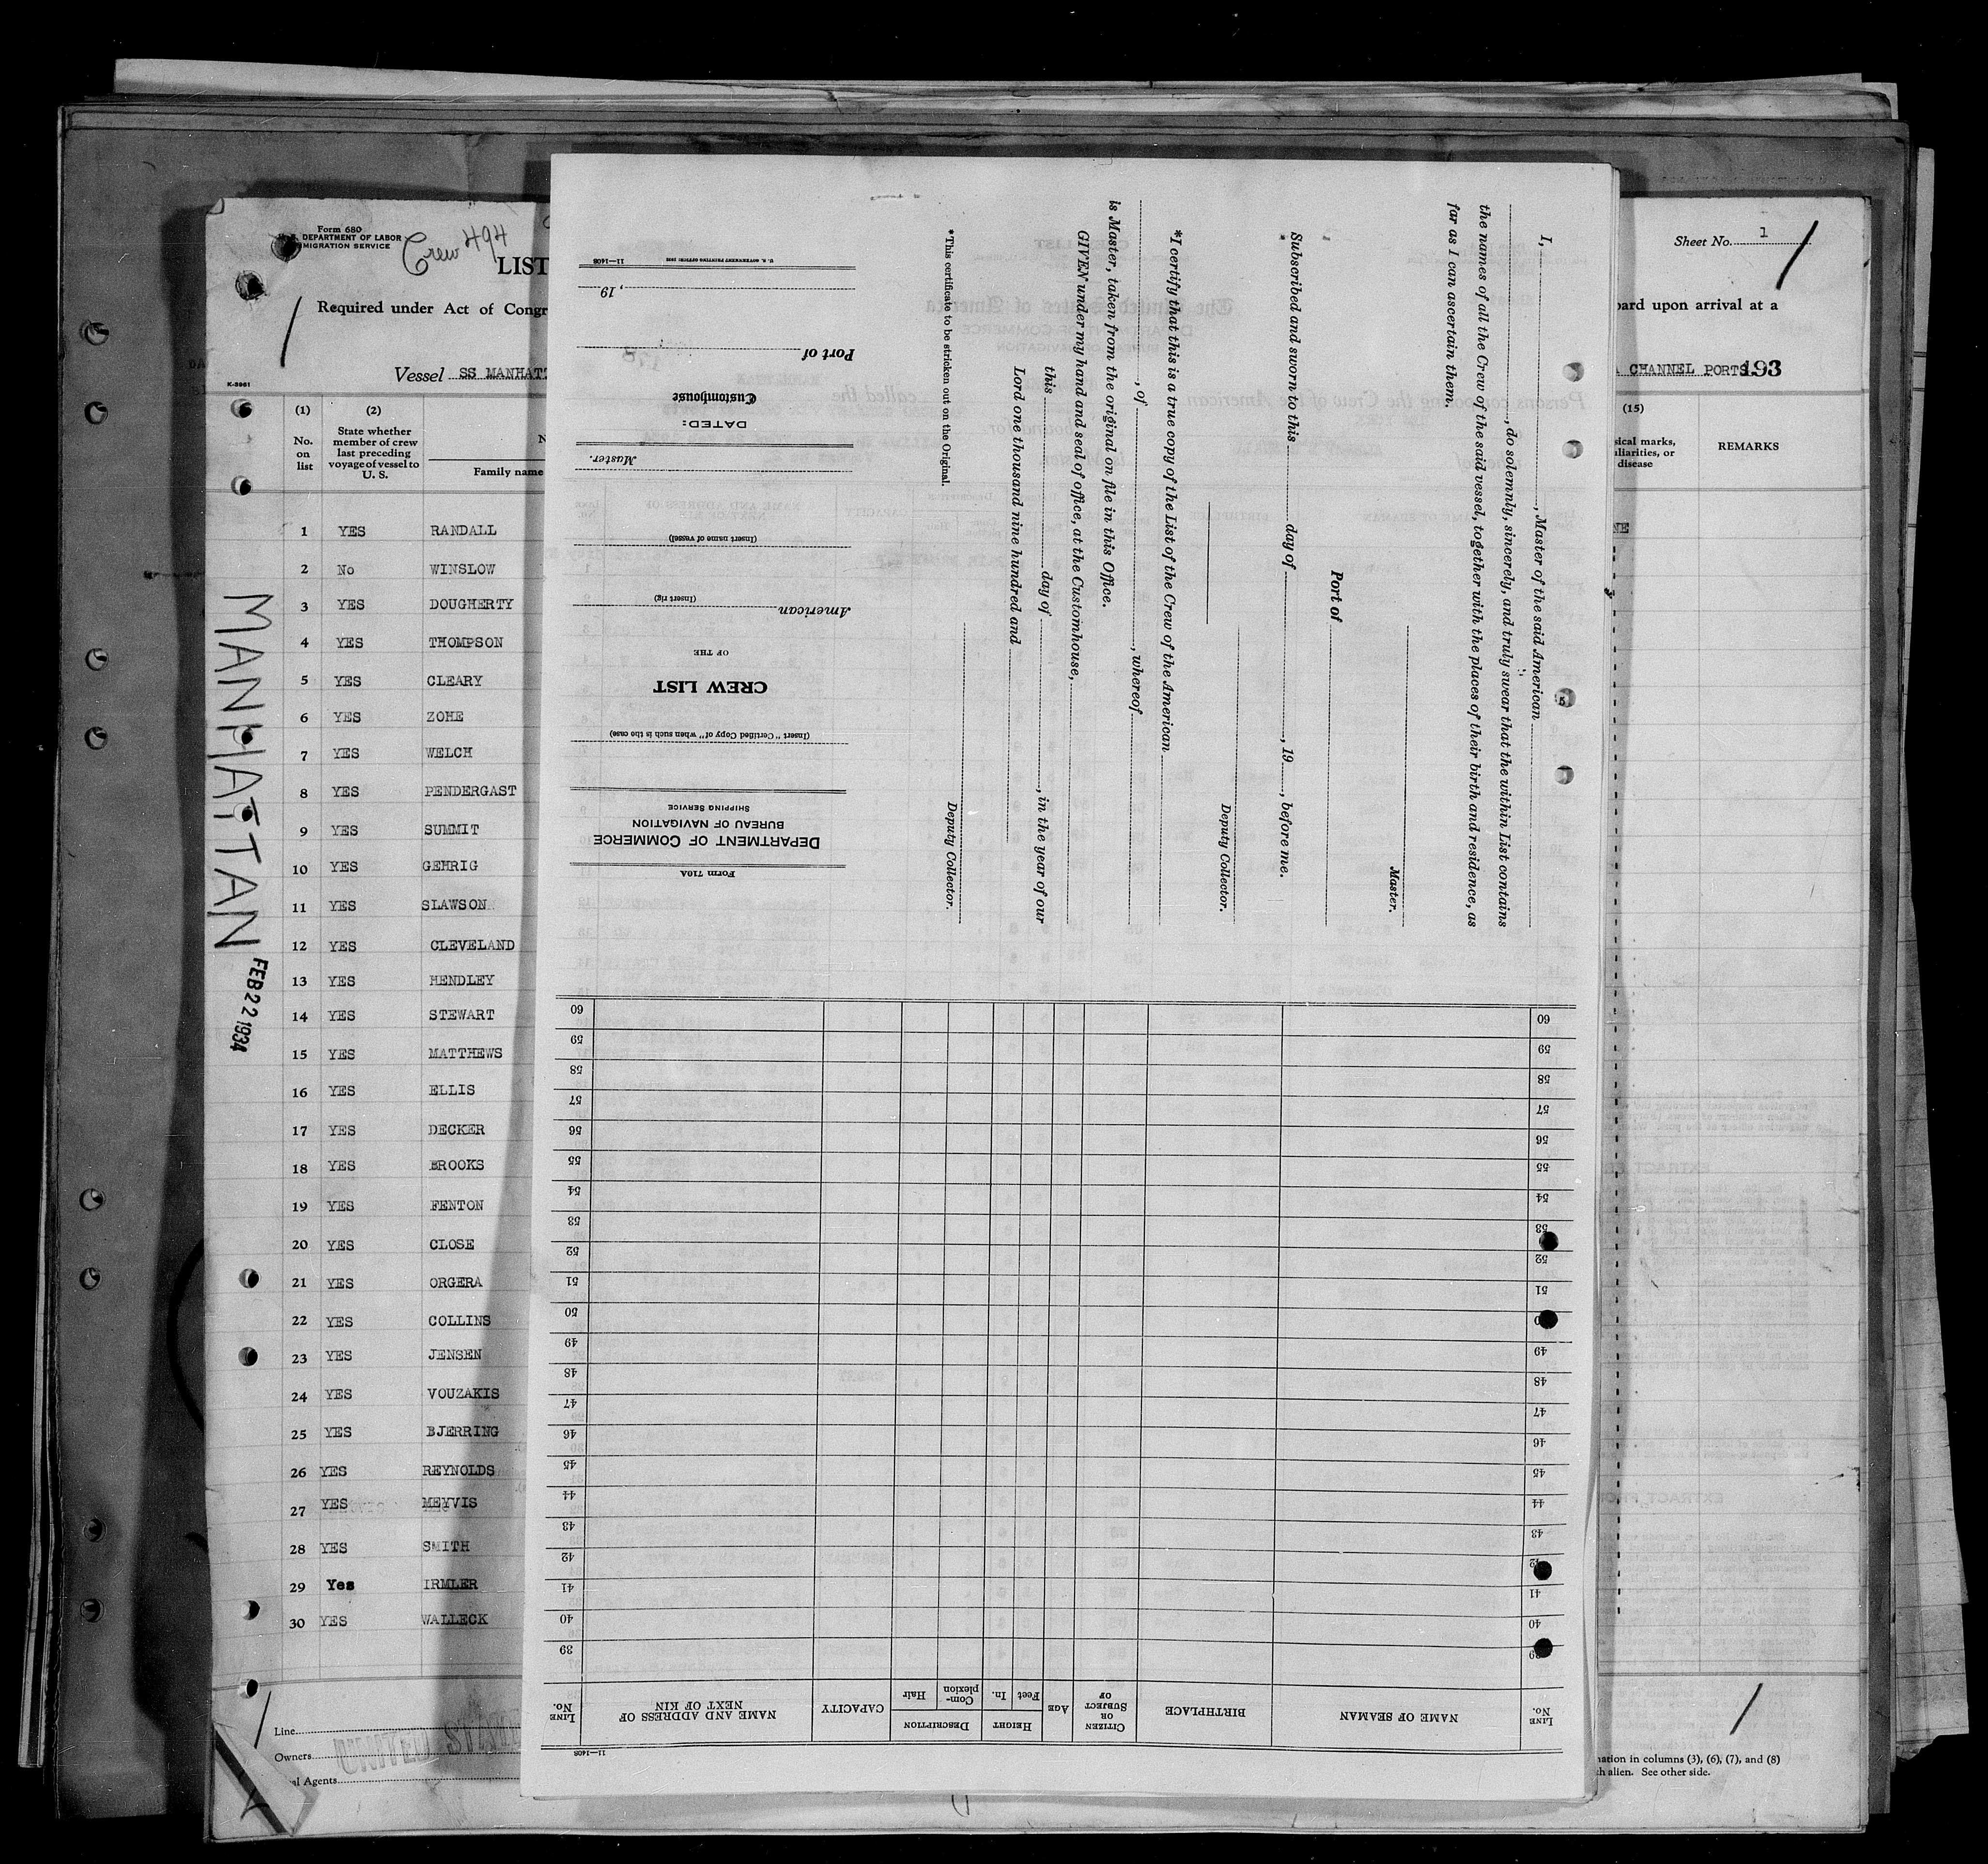 Form 680
DEPARTMENT OF LABOR
MIGRATION SERVICE
Crew 494
LIST
Required under Act of Congr
K-3961
Vessel SS MANHATT
(1) (2)
No. on list
State whether member of crew last preceding voyage of vessel to U. S.
Family name
1 YES RANDALL
2 No WINSLOW
3 YES DOUGHERTY
4 YES THOMPSON
5 YES CLEARY
6 YES ZOHE
7 YES WELCH
8 YES PENDERGAST
9 YES SUMMIT
10 YES GEHRIG
11 YES SLAWSON
12 YES CLEVELAND
13 YES HENDLEY
14 YES STEWART
15 YES MATTHEWS
16 YES ELLIS
17 YES DECKER
18 YES BROOKS
19 YES FENTON
20 YES CLOSE
21 YES ORGERA
22 YES COLLINS
23 YES JENSEN
24 YES VOUZAKIS
25 YES BJERRING
26 YES REYNOLDS
27 YES MEYVIS
28 YES SMITH
29 Yes IRMLER
30 YES WALLECK
MANHATTAN
FEB 22 1934
Line
Owners UNITED STATE
al Agents
Sheet No. 1
oard upon arrival at a
A CHANNEL PORTS 193
(15)
sical marks,
uliarities, or
disease
REMARKS
NE
nation in columns (3), (6), (7), and (8)
ch alien. See other side.
I, , Master of the said American
, do solemnly, sincerely, and truly swear that the within List contains
the names of all the Crew of the said vessel, together with the places of their birth and residence, as
far as I can ascertain them.
Master.
Port of
Subscribed and sworn to this day of , 19 , before me.
Deputy Collector.
*I certify that this is a true copy of the List of the Crew of the American
, of , whereof
is Master, taken from the original on file in this Office.
GIVEN under my hand and seal of office, at the Customhouse,
this day of , in the year of our
Lord one thousand nine hundred and
Deputy Collector.
*This certificate to be stricken out on the Original.
Form 710A
DEPARTMENT OF COMMERCE
BUREAU OF NAVIGATION
SHIPPING SERVICE
(Insert "Certified Copy of" when such is the case)
CREW LIST
OF THE
American
(Insert rig)
(Insert name of vessel)
Master.
DATED:
Customhouse
Port of
, 19
U. S. GOVERNMENT PRINTING OFFICE 11—1408
11—1408
LINE No.
NAME OF SEAMAN
BIRTHPLACE
CITIZEN OR SUBJECT OF
AGE
HEIGHT
Feet In.
DESCRIPTION
Complexion Hair
CAPACITY
NAME AND ADDRESS OF NEXT OF KIN
LINE No.
39 39
40 40
41 41
42 42
43 43
44 44
45 45
46 46
47 47
48 48
49 49
50
51 51
52 52
53 53
54 54
55 55
56 56
57 57
58 58
59 59
60 60